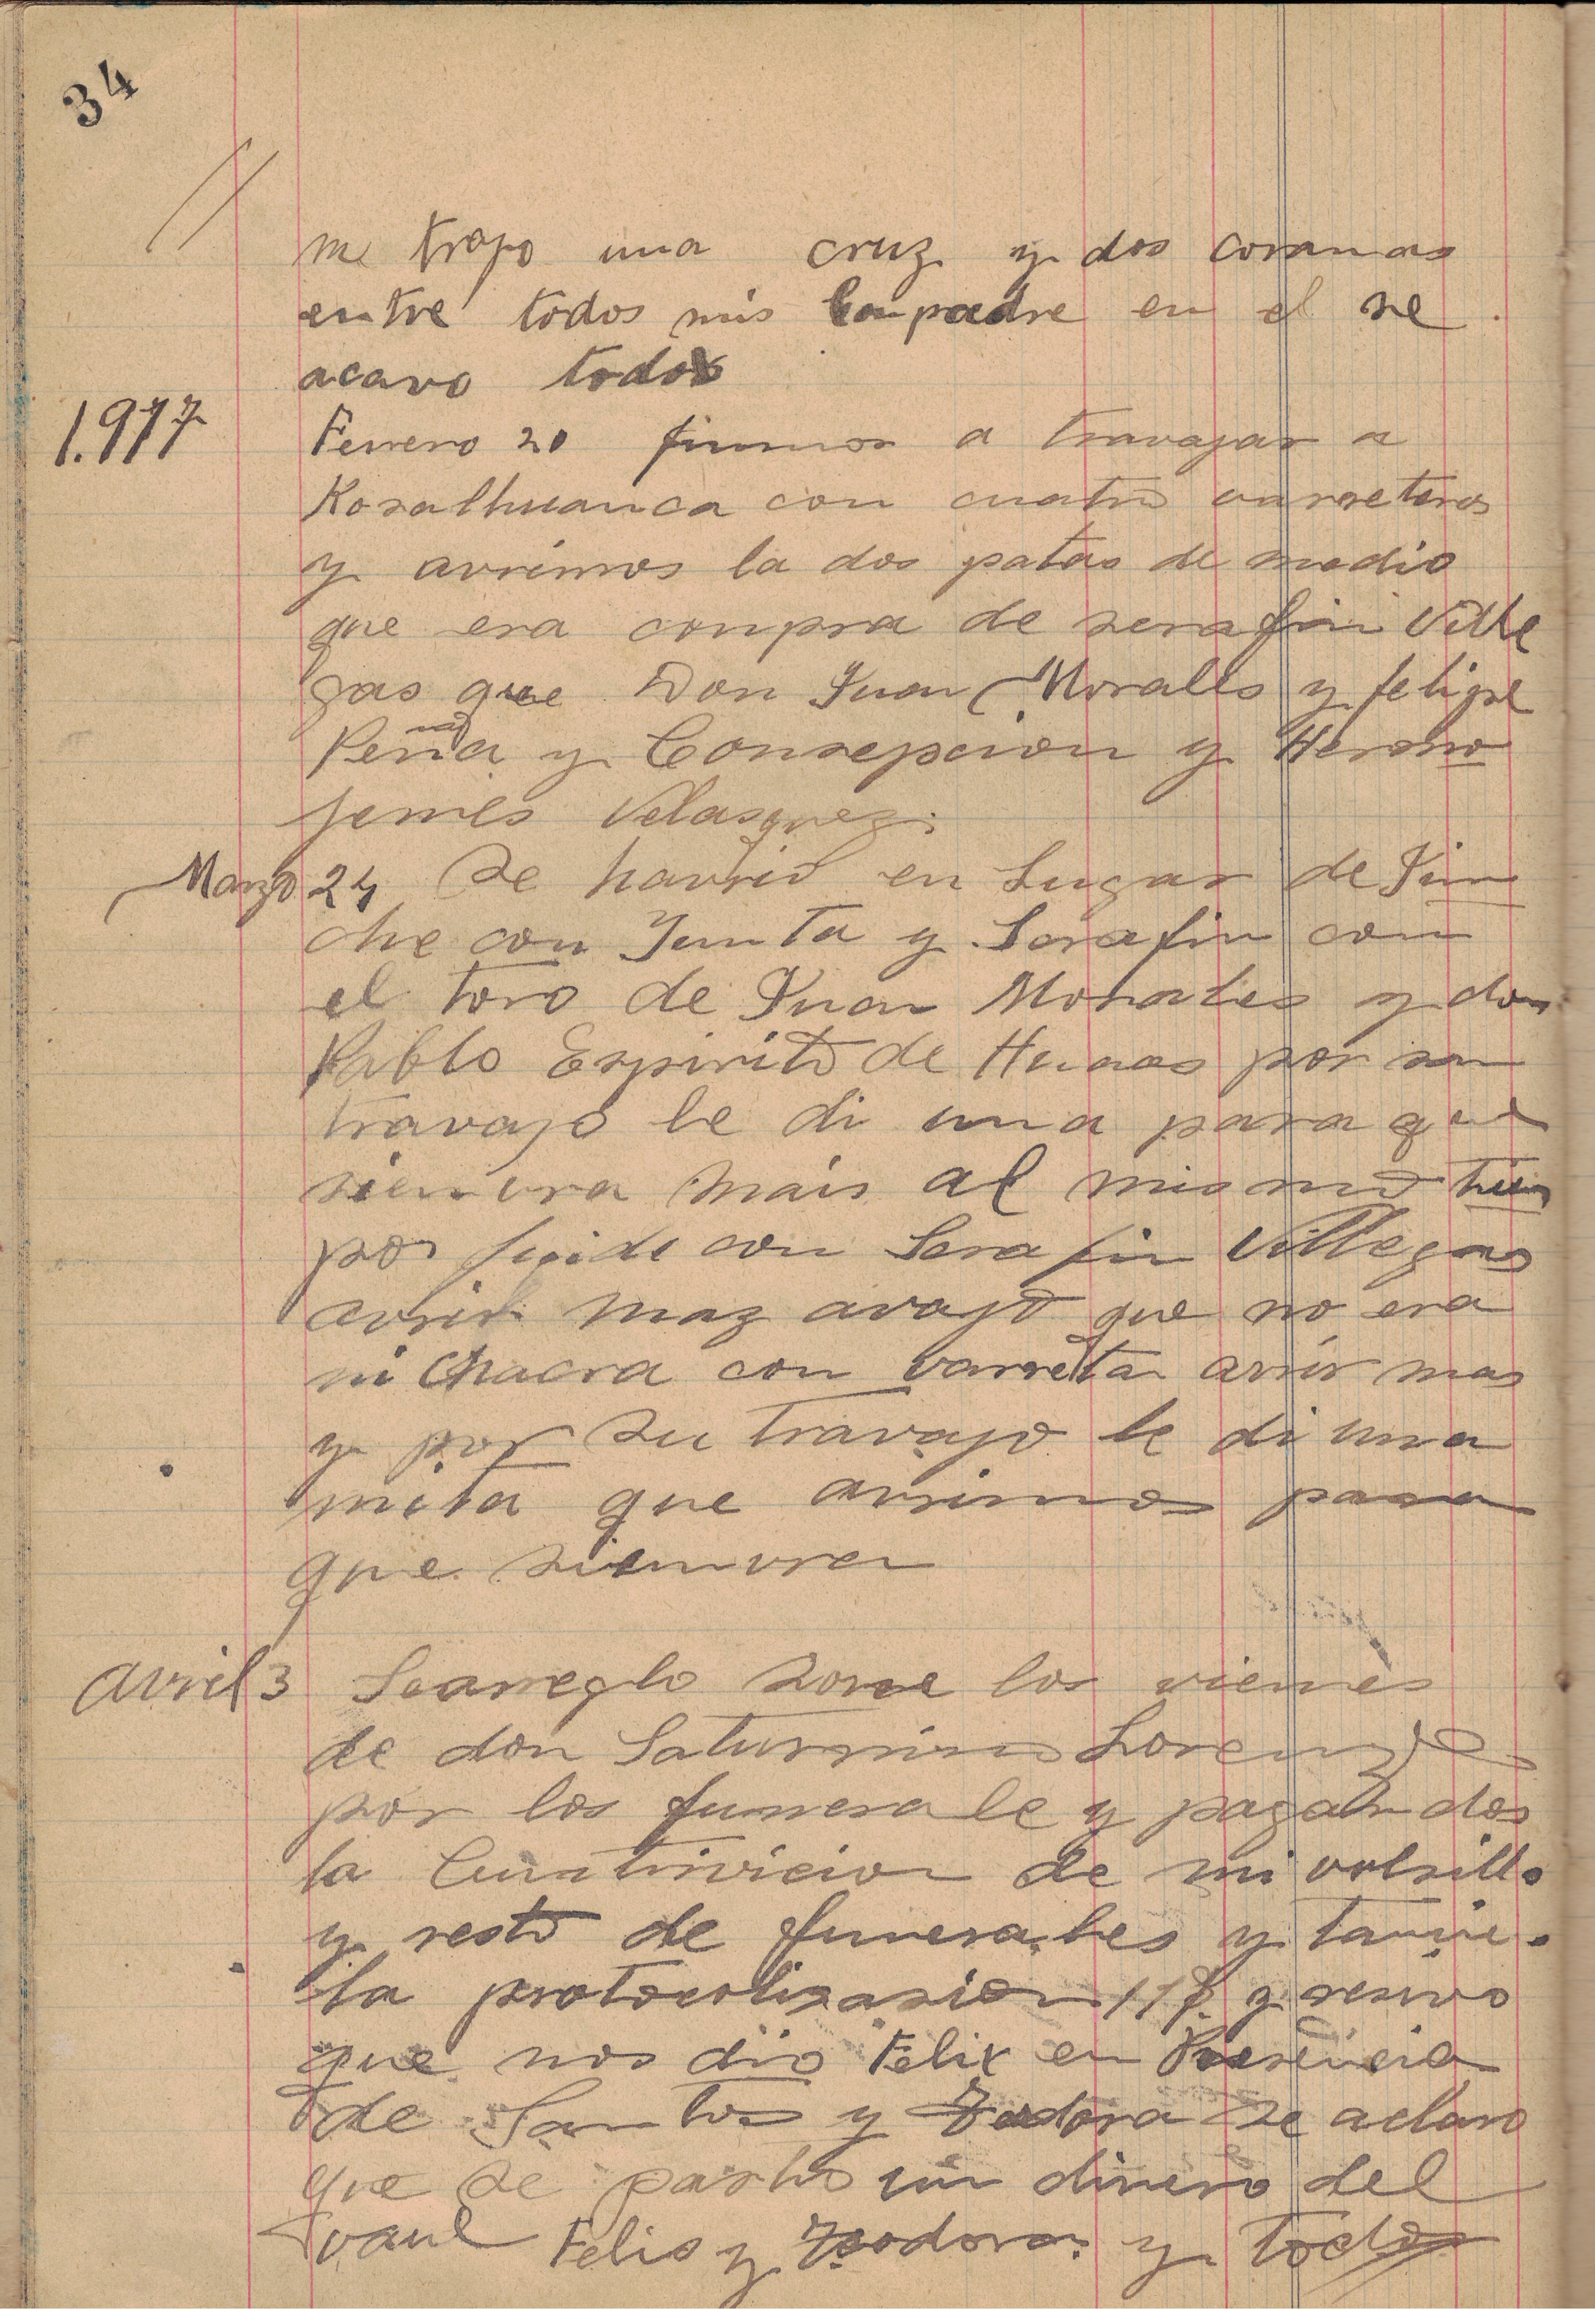 34
me trajo una cruz y dos coronas
entre todos mis Conpadre en el se
acavo todos
1.977
Fevrero 20 fuimos a travajar a
Koralhuanca con cuatro varreteros
y avrimos la dos patas de medio
que era conpra de serafin Ville
gas que Don Juan Morales y felipe
Peña y Consepcion y Hermo
jenes Velasquez.
Marzo 24 Se havrio en Lugar de Pin
che con Junta y Serafin con
el toro de Juan Morales y don
Pablo Espirito de Humas por su
travajo le di una para que
sienvra mais al mismo tien
po con Serafin Villegas
avrir maz avajo que no era
ni Chacra con varreta avrir mas
y por su travajo le di una
mita que avrimos para
que sienvra
Avril 3 Searreglo sovre los vienes
de don Saturnino Lorenzo
por los funerale y pagando
la Cuntrivicion de mi volsillo
y resto de funerales y tanvie
la protocolisasion 117 y resivo
que nos dio Felix en Presencia
de Santos y Teodora se aclaro
que se un dinero del
vaul Felis y Teodora y todos